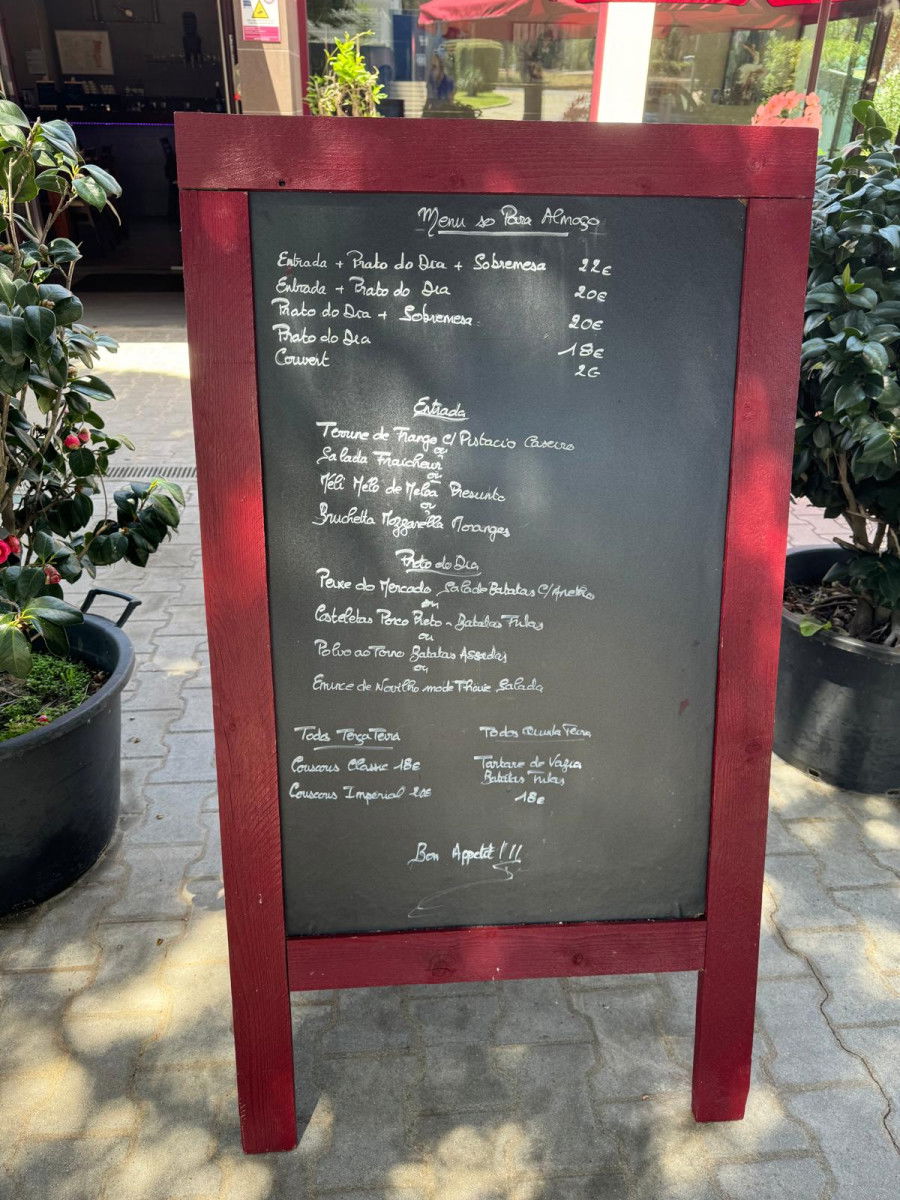 Menu so Para Almoço
Entrada + Prato do Dia + Sobremesa 22€
Entrada + Prato do Dia 20€
Prato do Dia + Sobremesa 20€
Prato do Dia 18€
Couvert 2€
Entrada
Terrine de Frango c/ Pistacio Caseiro
ou
Salada Fraicheur
ou
Méli Mélo de Meloa Presunto
ou
Bruchetta Mozzarella Morangos
Prato do Dia
Peixe do Mercado Salade Batatas C/
ou
Costeletas Porco Preto - Batatas Fritas
ou
Polvo ao Forno Batatas Assadas
ou
Emince de Novilho mode Thaie Salada
Todas Terça Feira
Couscous Classic 18€
Couscous Imperial 20€
Todas Quinta Feira
Tartare de Vazia
Batatas Fritas
18€
Bon Appetit !!!